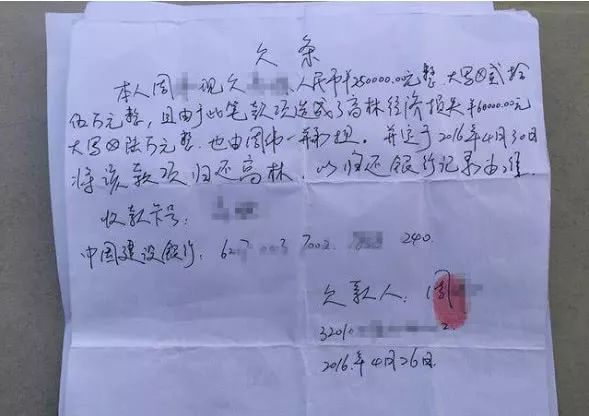 欠条
本人周 现欠 人民币¥250000.00元整 大写⊗贰拾
伍万元整,且由于此笔款项造成了高林经济损失¥60000.00元
大写⊗陆万元整 也由周 一并承担。并定于2016年4月30日
将该款项归还高林,以归还银行记录为准
收款卡号:
中国建设银行: 62 003 7002 240.
欠款人: 周
3201 2
2016年4月26日.